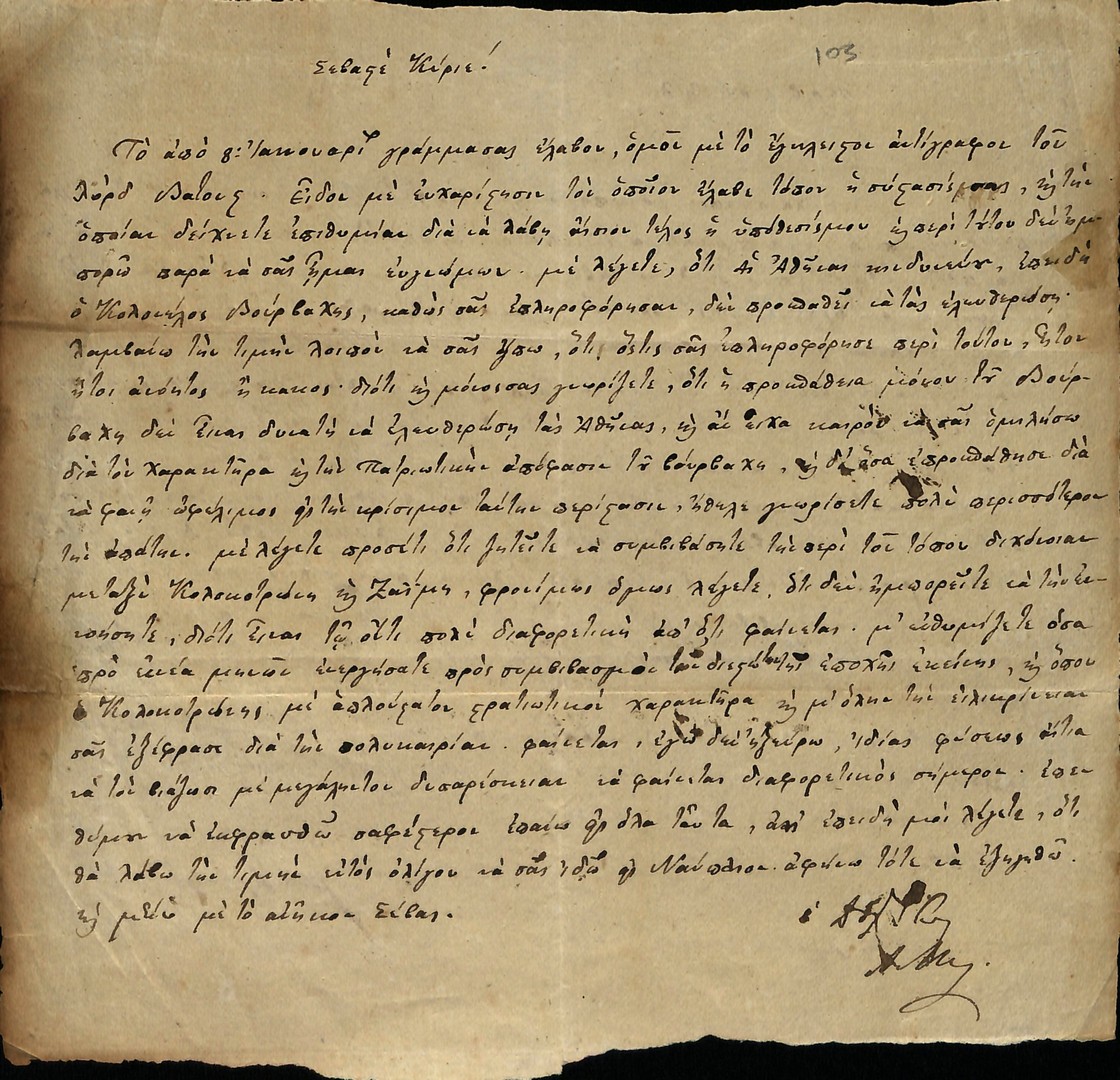 Σεβαστὲ Κύριε!
103
Τὸ ἀπὸ 8: Ἰανουαρίου γράμμασας ἔλαβον, ὁμοῦ μὲ τὸ ἔγκλειστον ἀντίγραφον τοῦ
Λὸρδ. Εἶδον μὲ εὐχαρίστησιν τὸν ὁποῖον ἔλαβε τόπον ἡ σύστασίςμας, καὶ τὴν
ὁποίαν δείχνετε ἐπιθυμίαν διὰ νὰ λάβῃ αἴσιον τέλος ἡ ὑπόθεσίςμου καὶ περὶ τούτου δὲν ἠμ-
πορῶ παρὰ νὰ σᾶς ἦμαι εὐγνώμων. μὲ λέγετε, ὅτι αἱ Ἀθῆναι κινδυνεύουν, ἐπειδὴ
ὁ Κολονέλος Βούρβαχης, καθὼς σᾶς ἐπληροφόρησαν, δὲν προσπαθεῖ νὰ τὰς ἐλευθερώσῃ.
λαμβάνω τὴν τιμὴν λοιπὸν νὰ σᾶς εἴπω, ὅτι ὅστις σᾶς ἐπληροφόρησε περὶ τούτου, ἦτον
ἤτοι ἀνόητος ἢ κακός. διότι καὶ μόνοςσας γνωρίζετε, ὅτι ἡ προσπάθεια μόνον τοῦ Βούρ-
βαχη δὲν εἶναι δυνατὴ νὰ ἐλευθερώσῃ τὰς Ἀθήνας, καὶ ἂν εἶχα καιρὸν νὰ σᾶς ὁμιλήσω
διὰ τὸν χαρακτῆρα καὶ τὴν Πατριωτικὴν ἀπόφασιν τοῦ Βούρβαχη, καὶ δι' ὅσα ἐπροσπάθησε διὰ
νὰ φανῇ ὠφέλιμος εἰς τὴν κρίσιμον ταύτην περίστασιν, ἤθελε γνωρίσετε πολὺ περισσότερον
τὴν ἀπάτην. μὲ λέγετε προσέτι ὅτι ζητεῖτε νὰ συμβιβάσητε τὴν περὶ τοῦ τόπου διχόνοιαν
μεταξὺ Κολοκοτρώνη καὶ Ζαΐμη, φρονίμως ὅμως λέγετε, ὅτι δὲν ἠμπορεῖτε νὰ τὴν ἐν-
νοήσητε, διότι εἶναι τῷ ὄντι πολὺ διαφορετικὴ ἀπ' ὅ,τι φαίνεται. μ' ἐνθυμίζετε ὅσα
πρὸ ἐννέα μηνῶν ἐνεργήσατε πρὸς συμβιβασμὸν τῶν τῆς ἐποχῆς ἐκείνης, καὶ ὅπου
ὁ Κολοκοτρώνης μὲ ἁπλούστατον στρατιωτικὸν χαρακτῆρα καὶ μ' ὅλην τὴν εἰλικρίνειαν
σᾶς ἐξέφρασε διὰ τὴν. φαίνεται, ἐγὼ δὲν ἠξεύρω, ἰδίας φύσεως αἴτια
νὰ τὸν βιάζωσι μὲ μεγάλητου δυσαρέσκειαν νὰ φαίνεται διαφορετικὸς σήμερον. ἐπε-
θύμουν νὰ ἐκφρασθῶ σαφέστερον ἐπάνω εἰς ὅλα ταῦτα, ἀλλ' ἐπειδὴ μοὶ λέγετε, ὅτι
θὰ λάβω τὴν τιμὴν ἐντὸς ὀλίγου νὰ σᾶς ἰδῶ εἰς Ναύπλιον. ἀφήνω τότε νὰ ἐξηγηθῶ.
καὶ μένω μὲ τὸ ἀνῆκον Σέβας.